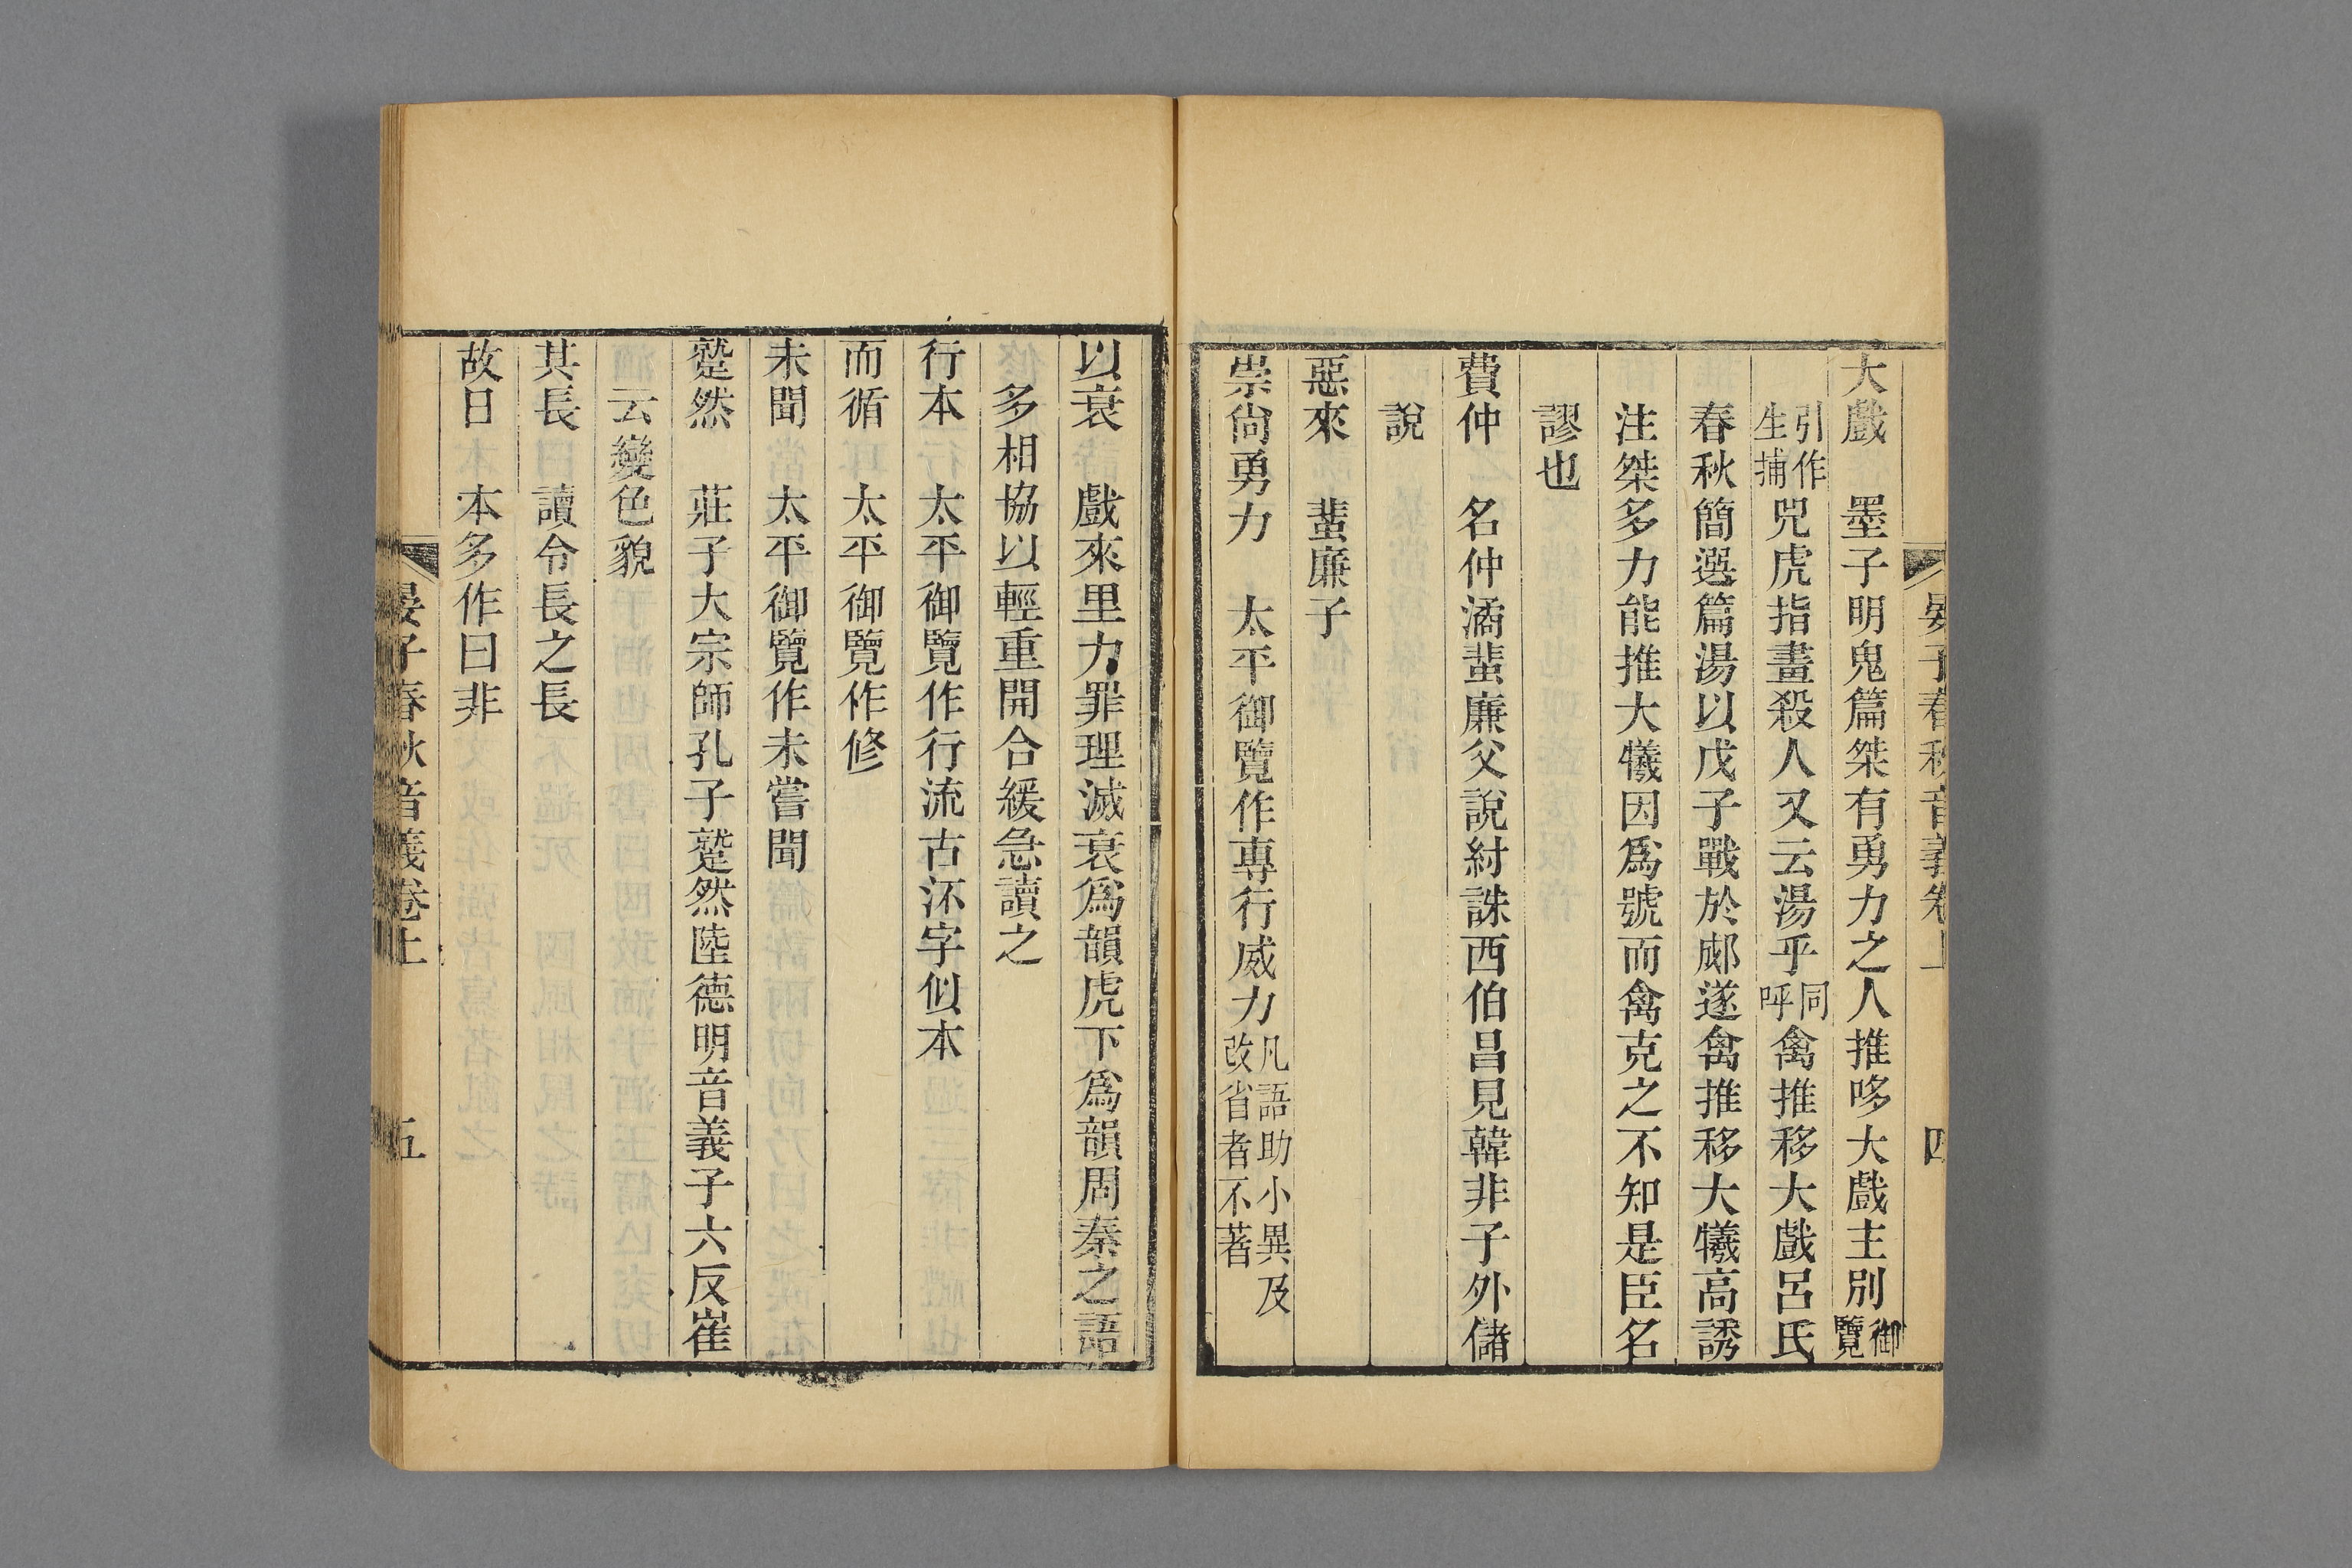 晏子春秋音義卷上 四
大戲 墨子明鬼篇桀有勇力之人推哆大戲主別御覽
引作生捕兕虎指畫殺人又云湯乎同呼禽推移大戲呂氏
春秋簡選篇湯以戊子戰於郕遂禽推移大犧高誘
注桀多力能推大犧因爲號而禽克之不知是臣名
謬也
費仲 名仲潏蜚廉父說紂誅西伯昌見韓非子外儲
說
惡來 蜚廉子
崇尙勇力 太平御覽作專行威力凡語助小異及改省者不著
以衰 戲來里力罪理滅衰爲韻虎下爲韻周秦之語
多相協以輕重開合緩急讀之
行本 太平御覽作行流古㳅字似本
而循 太平御覽作修
未聞 太平御覽作未嘗聞
蹵然 莊子大宗師孔子蹵然陸德明音義子六反崔
云變色貌
其長 讀令長之長
故日 本多作曰非
晏子春秋音義卷上 五